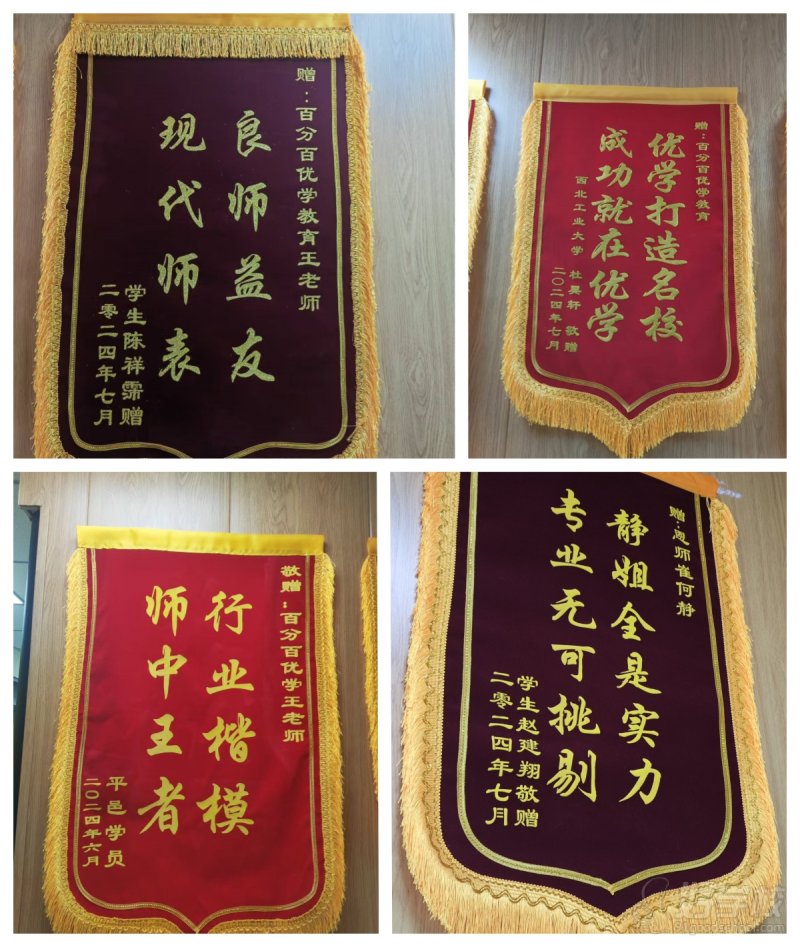 赠:百分百优学教育王老师
良师益友
现代师表
学生陈祥霈赠
二零二四年七月
赠:百分百优学教育
优学打造名校
成功就在优学
西北工业大学 杜昊轩 敬赠
二〇二四年七月
敬赠:百分百优学王老师
行业楷模
师中王者
平邑学员
二〇二四年六月
赠:恩师崔何静
静姐全是实力
专业无可挑剔
学生赵建翔敬赠
二零二四年七月